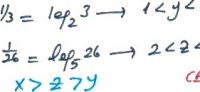 1/3 = log₂3 → 1 < y <
1/26 = log₅26 → 2 < z <
x > z > y